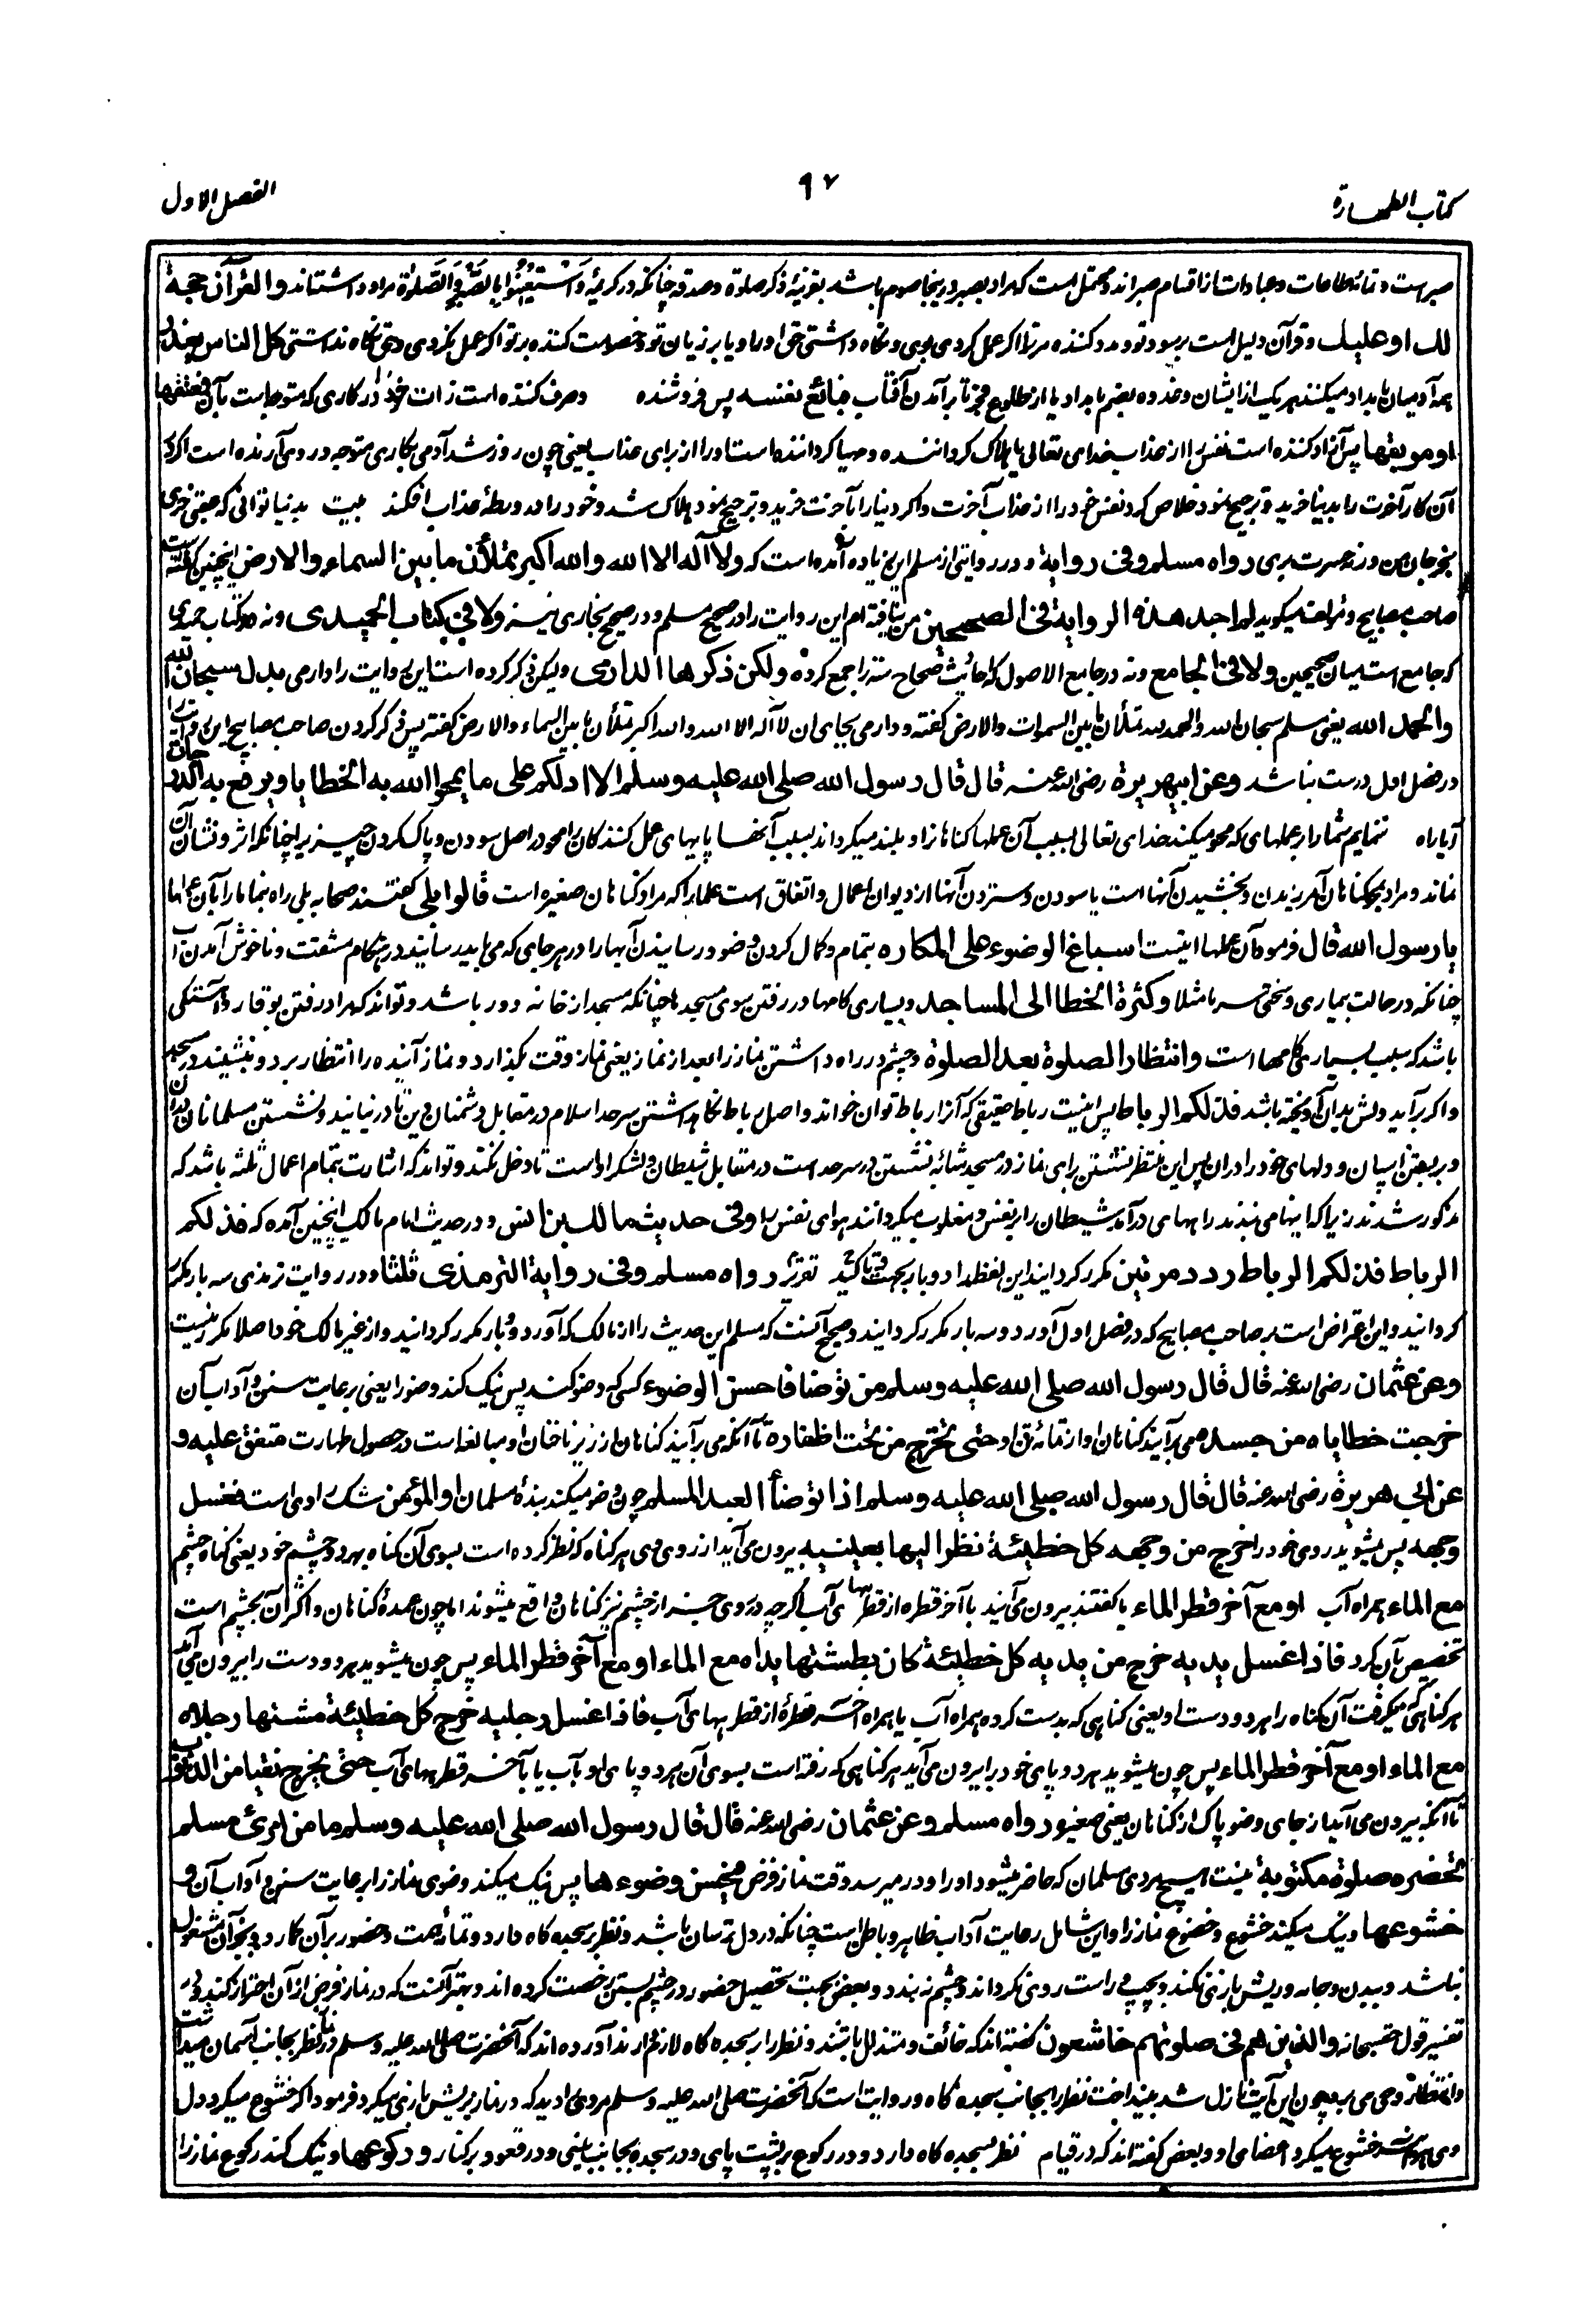 کتاب الطهارة
۹۷
الفصل الاول
صبرست و تمامه طاعات و عبادات از اقسام صبر اند و محتمل است که مراد بصبر درینجا صوم باشد بقرینهٔ ذکر صلوة و صدقه چنانکه در کریمهٔ وَاسْتَعِينُوا بِالصَّبْرِ وَالصَّلٰوةِ مراد داشته‌اند والقرآن حجة
لك او عليك و قرآن دلیل است بر سود تو و مدد کننده مر ترا اگر عمل کردی بوی و نگاه داشتی حق او را و یا بر زیان تو و خصومت کننده بر تو اگر عمل نکردی و حق نگاه نداشتی كل الناس يغدو
همه آدمیان بامداد میکنند هر یک از ایشان و غدوه بضم بامداد یا از طلوع فجر تا برآمدن آفتاب فبائع نفسه پس فروشنده و صرف کننده است ذات خود را در کاری که متوجه است بآن فمعتقها
او موبقها پس آزاد کننده است نفس را از عذاب خدای تعالی یا هلاک کرداننده و مهیا کرداننده است او را از برای عذاب یعنی چون روز شد آدمی بکاری متوجه و روی آرنده است اگر در
آن کار آخرت را بدنیا خرید و ترجیح نمود خلاص کرد نفس خود را از عذاب آخرت و اگر دنیا را بآخرت خرید و ترجیح نمود هلاک شد و خود را در ورطهٔ عذاب افکند بیت بدنیا توانی که عقبی خری
بخر جان من ورنه حسرت بری رواه مسلم وفی رواية و در روایتی از مسلم این زیاده آمده است که ولا آله الا الله والله اكبر تملأن ما بين السماء والارض اینچنین گفته است
صاحب مصابیح و مؤلف میکوید لم اجد هذه الرواية فی الصحيحين من نیافته ام این روایت را در صحیح مسلم و در صحیح بخاری نیز ولا فی كتاب الحميدی و نه در کتاب حمیدی
که جامع است میان صحیحین ولا فی الجامع و نه در جامع الاصول که احادیث صحاح سته را جمع کرده ولكن ذكرها الدارمی ولیکن ذکر کرده است این روایت را دارمی بدل سبحان الله
والحمد لله یعنی مسلم سبحان الله والحمد لله تملأن ما بین السموات والارض گفته و دارمی بجای آن لا آله الا الله والله اکبر تملأن ما بین السماء والارض گفته پس ذکر کردن صاحب مصابیح این روایت را
در فصل اول درست نباشد وعن ابی هريرة رضی الله عنه قال قال رسول الله صلی الله عليه وسلم الا ادلكم علی ما يمحو الله به الخطايا ويرفع به الدرجات
آیا راه ننمایم شما را بر عملهای که محو میکند خدای تعالی بسبب آن عملها کناهان را و بلند میکرداند بسبب آنها پایهای عمل کنندکان را محو در اصل سودن و پاک کردن چیزیرا چنانکه اثر و نشان آن
نماند و مراد بمحو کناهان آمرزیدن و بخشیدن آنها است یا سودن و ستردن آنها از دیوان اعمال و اتفاق است علما را که مراد کناهان صغیره است قالوا بلی گفتند صحابه بلی راه بنما ما را بآن عملها
يا رسول الله قال فرمود آن عملها اینست اسباغ الوضوء علی المكاره بتمام و کمال کردن وضو و رسانیدن آبها را در هر جای که می باید رسانید در هنکام مشقت و ناخوش آمدن آب
چنانکه در حالت بیماری و سختی سرما مثلا وكثرة الخطا الی المساجد و بسیاری کامها در رفتن بسوی مسجدها چنانکه مسجد از خانه دور باشد و تواند که مراد رفتن بوقار و آهستکی
باشد که سبب بسیاری کامها است وانتظار الصلوة بعد الصلوة و چشم در راه داشتن نماز را بعد از نماز یعنی نماز وقت بگذارد و نماز آینده را انتظار برد و بنشیند در مسجد
و اگر برآید دلش بدان آویخته باشد فذلكم الرباط پس اینست رباط حقیقی که آنرا رباط توان خواند و اصل رباط نکاهداشتن سرحد اسلام در مقابل دشمنان دین تا در نیایند و نشستن مسلمانان در آن
و بربستن اسپان و دلهای خود را در آن پس این منتظر نشستن برای نماز در مسجد بمثابهٔ نشستن در سرحد است در مقابل شیطان و لشکر او است تا دخل نکند و تواند که اشارت بتمام اعمال ثلثه باشد که
مذکور شدند زیرا که اینها می بندند راههای درآمد شیطان را بر نفس و مغلوب میکردانند هوای نفس را وفی حديث مالك بن انس و در حدیث امام مالک اینچنین آمده که فذلكم
الرباط فذلكم الرباط ردد مرتين مکرر کردانید این لفظ را دو بار بجهت تاکید تقریر رواه مسلم وفی رواية الترمذی ثلثا و در روایت ترمذی سه بار مکرر
کردانید و این اعتراض است بر صاحب مصابیح که در فصل اول آورد و سه بار مکرر کردانید و صحیح آنست که مسلم این حدیث را از مالک که آورد دو بار مکرر کردانید و از غیر مالک خود اصلا مکرر نیست
وعن عثمان رضی الله عنه قال قال رسول الله صلی الله عليه وسلم من توضا فاحسن الوضوء کسی که وضو کند پس نیک کند وضو را یعنی برعایت سنن و آداب آن
خرجت خطاياه من جسده می برآیند کناهان او از تمامهٔ تن او حتی تخرج من تحت اظفاره تا آنکه می برآیند کناهان از زیر ناخنان او مبالغه است در حصول طهارت متفق عليه و
عن ابی هريرة رضی الله عنه قال قال رسول الله صلی الله عليه وسلم اذا توضأ العبد المسلم چون وضو میکند بندهٔ مسلمان او المؤمن شک راوی است فغسل
وجهه پس میشوید روی خود را خرج من وجهه كل خطيئة نظر اليها بعينيه بیرون می آید از روی وی هر کناه که نظر کرده است بسوی آن کناه بهر دو چشم خود یعنی کناه چشم
مع الماء همراه آب او مع آخر قطر الماء یا گفتند بیرون می آیند با آخر قطره از قطرهای آب اگرچه در روی جز از چشم نیز کناهان واقع میشوند اما چون عمدهٔ کناهان و اکثر آن بچشم است
تخصیص بآن کرد فاذا غسل يديه خرج من يديه كل خطيئة كان بطشتها يداه مع الماء او مع آخر قطر الماء پس چون میشوید هر دو دست را بیرون می آید
هر کناهی که میگرفت آن کناه را هر دو دست او یعنی کناهی که بدست کرده همراه آب یا همراه آخر قطرهٔ از قطرهای آب فاذا غسل رجليه خرج كل خطيئة مشتها رجلاه
مع الماء او مع آخر قطر الماء پس چون میشوید هر دو پای خود را بیرون می آید هر کناهی که رفته است بسوی آن هر دو پای او بآب یا بآخر قطرهای آب حتی يخرج نقيا من الذنوب
تا آنکه بیرون می آید از جای وضو پاک از کناهان یعنی صغیره رواه مسلم وعن عثمان رضی الله عنه قال قال رسول الله صلی الله عليه وسلم ما من امرئ مسلم
تحضره صلوة مكتوبة نیست هیچ مردی مسلمان که حاضر میشود او را و در میرسد وقت نماز فرض فيحسن وضوءها پس نیک میکند وضوی نماز را برعایت سنن و آداب آن و
خشوعها و نیک میکند خشوع و خضوع نماز را و این شامل رعایت آداب ظاهر و باطن است چنانکه در دل ترسان باشد و نظر بر سجده کاه دارد و تمامه همت و حضور بر آن کمارد و بجز آن مشغول
نباشد و ببدن و جامه و ریش بازی نکند و بچپ و راست روی نکرداند و چشم نه بندد و بعض بجهت تحصیل حضور در چشم بستن رخصت کرده اند و بهتر آنست که در نماز فرض از آن احتراز کند و در
تفسیر قول حق سبحانه والذين هم فی صلوتهم خاشعون گفته اند که خائف و متذلل باشند و نظر را بر سجده کاه لازم دارند آورده اند که آنحضرت صلی الله علیه وسلم در نماز نظر بجانب آسمان میداشت
و انتظار وحی می برد چون این آیت نازل شد بینداخت نظر را بجانب سجده کاه و روایت است که آنحضرت صلی الله علیه وسلم مردی را دید که در نماز بریش بازی میکرد فرمود اگر خشوع میکرد دل
وی خشوع میکرد اعضای او و بعض گفته اند که در قیام نظر بسجده کاه دارد و در رکوع بر پشت پای و در سجده بجانب بینی و در قعود بر کنار وركوعها و نیک کند رکوع نماز را